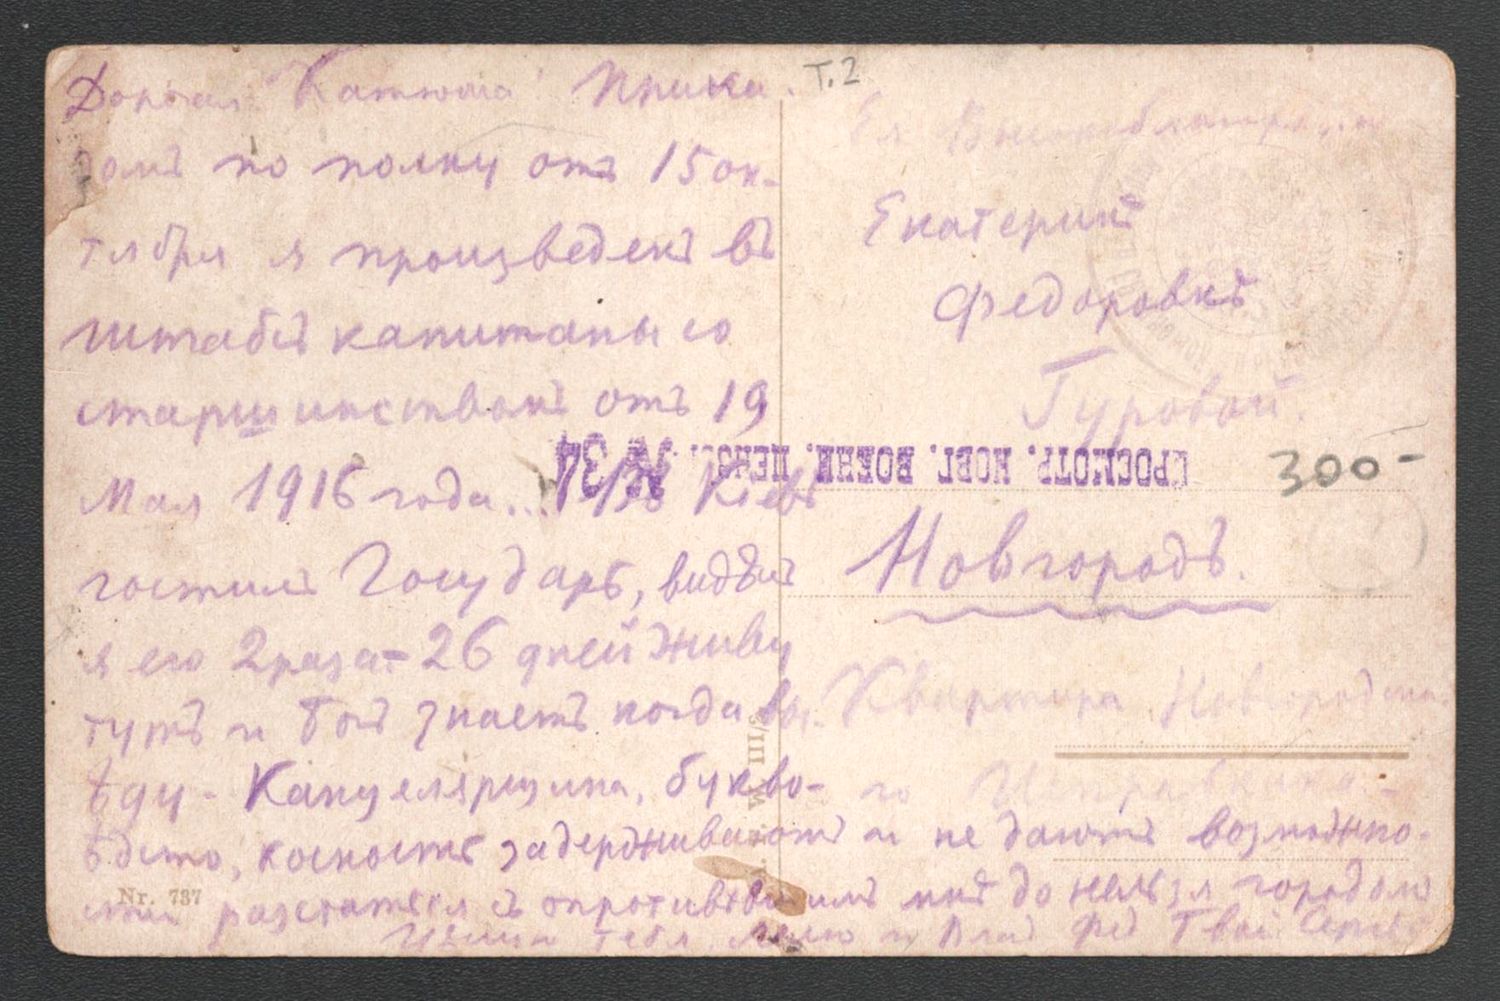 Дорогая Катюша! Прика-
зомъ по полку отъ 15 ок-
тября я произведенъ въ
штабсъ капитаны со
старшинствомъ отъ 19
Мая 1916 года... Въ Кіевѣ
гостилъ Государь, видѣлъ
я его 2 раза - 26 дней живу
тутъ и Богъ знаетъ когда вы-
ѣду - Канцелярщина, букво-
ѣдство, косность задерживаютъ и не даютъ возможно-
сти разстаться съ опротивѣвшимъ мнѣ до нельзя городомъ
Цѣлую тебя, Лелю и Твой Сергѣй
Т.2
Ея Высокоблагородію
Екатеринѣ
Федоровнѣ
Гуровой.
ПРОСМОТР. НОВГ. ВОЕНН. ЦЕНЗ. № 34
300-
Новгородъ.
Квартира Новгородска-
го Исправника -
Nr. 737